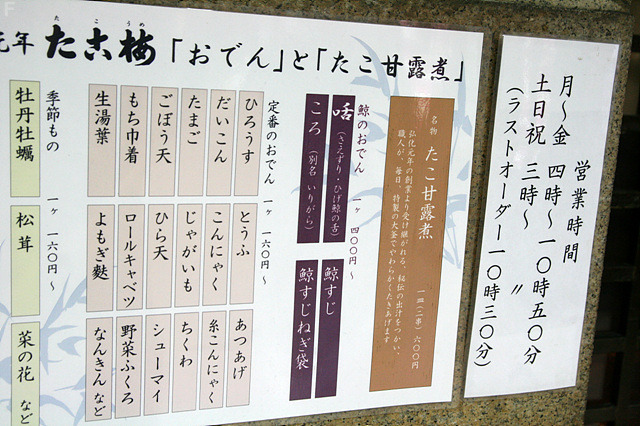 営業時間
月〜金 四時〜一〇時五〇分
土日祝 三時〜 〃
(ラストオーダー一〇時三〇分)
元年 たこ梅「おでん」と「たこ甘露煮」
たこうめ
名物 たこ甘露煮
弘化元年の創業より受け継がれる、秘伝の出汁をつかい、
職人が、毎日、特製の大釜でやわらかくたきあげます
一皿(二串) 六〇〇円
鯨のおでん 一ヶ 四〇〇円〜
舌(さえずり・ひげ鯨の舌)
鯨すじ
ころ(別名 いりがら)
鯨すじねぎ袋
定番のおでん 一ヶ 一六〇円〜
ひろうす
とうふ
あつあげ
だいこん
こんにゃく
糸こんにゃく
たまご
じゃがいも
ちくわ
ごぼう天
ひら天
シューマイ
もち巾着
ロールキャベツ
野菜ふくろ
生湯葉
よもぎ麩
なんきん など
季節もの 一ヶ 一六〇円〜
牡丹牡蠣
松茸
菜の花 など
F